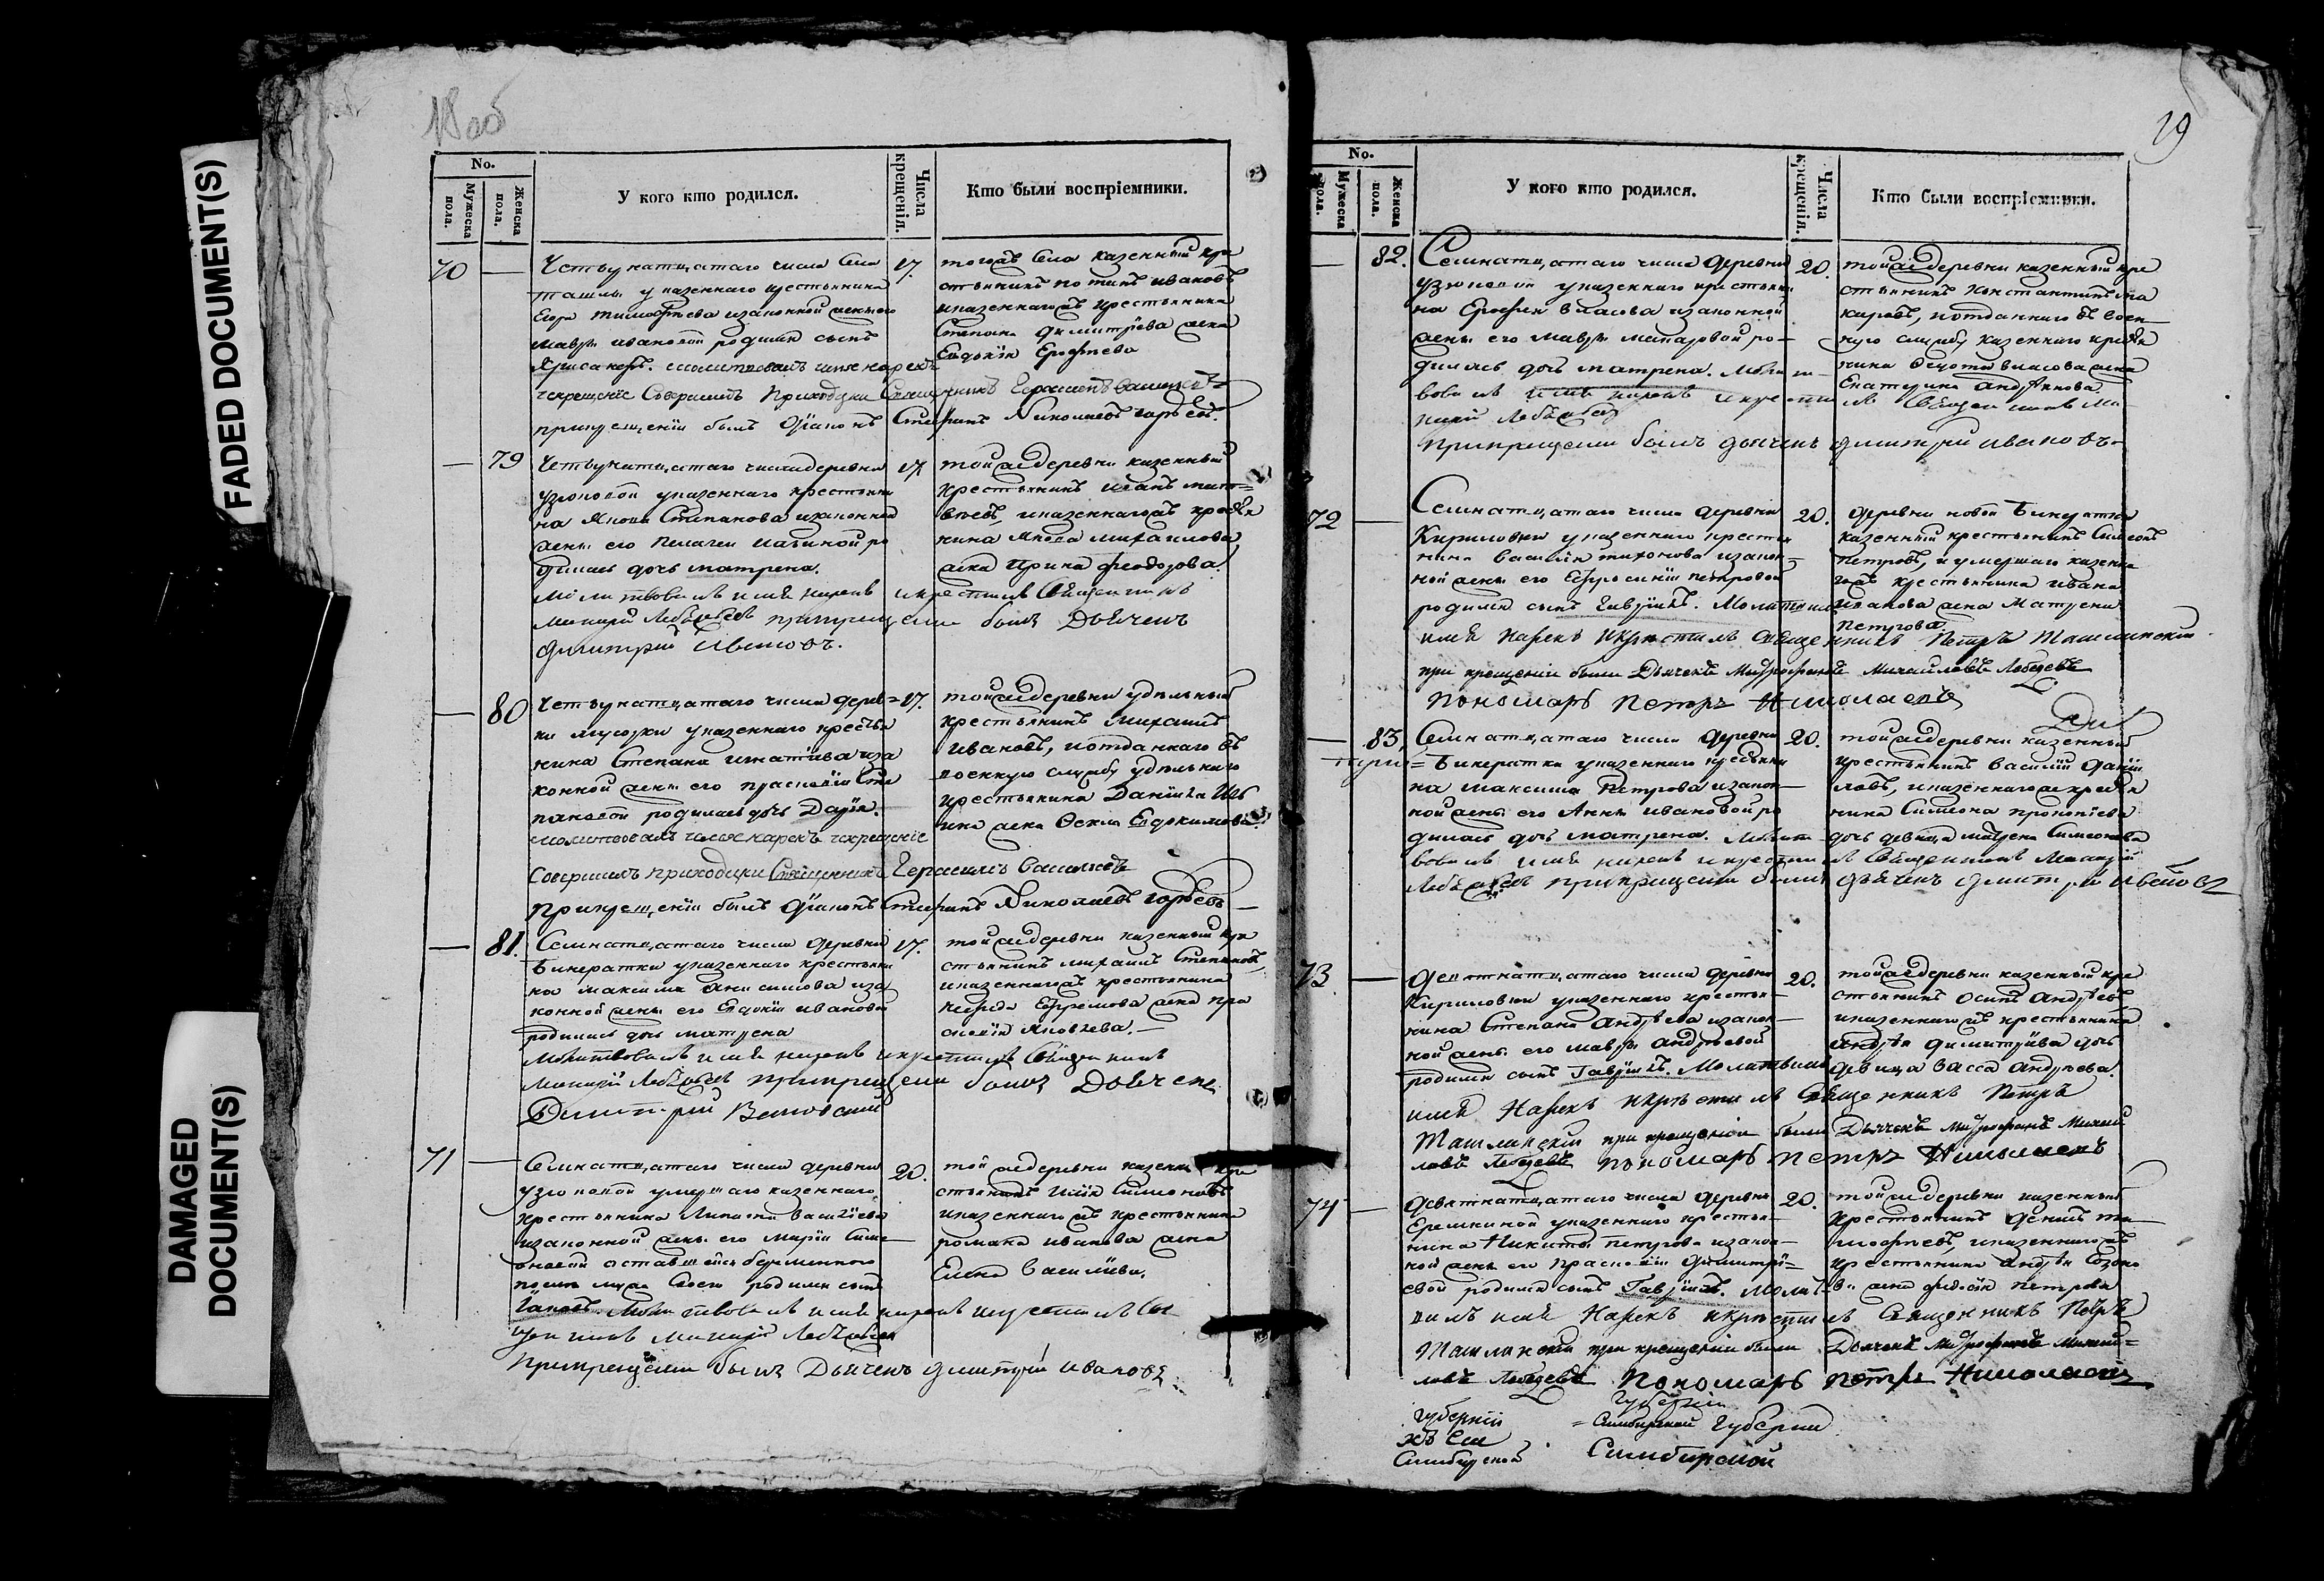 FADED DOCUMENT(S)
DAMAGED
DOCUMENT(S)
18 об
No.
Мужеска пола.
Женска пола.
У кого кто родился.
Числа крещенія.
Кто были воспріемники.
70
Четырнатцатаго числа села
Ташлы у казеннаго крестьянина
Егора Тимофѣева изаконной жены его
Мавры Ивановой родился сынъ
молитвовалъ имя нарекъ
и крещеніе совершилъ приходски священникъ Герасимъ Васильевъ
при крещеніи былъ діаконъ Стефанъ Николаевъ
17.
тогожъ села казенный кре
стьянинъ Ивановъ
и казеннаго крестьянина
Степана Димитріева жена
Евдокія Ерофѣева
79
Четырнатцатаго числа деревни
Узюковой у казеннаго крестьяни
на Якова Степанова изаконной
жены его Пелагеи Ильиной ро
дилась дочь Матрена.
молитвовалъ имя нарекъ и крестилъ священникъ
Лебедевъ при крещеніи былъ Дьячекъ
Димитрий Ивановъ.
17
тойже деревни казенный
крестьянинъ Иванъ Мат=
вѣевъ, и казеннагожъ кресья
нина Якова Михайлова
жена Ирина Феодорова.
80
Четырнатцатаго числа дерев=
ни Мусорки у казеннаго кресья
нина Степана Игнатіева иза
конной жены его Прасковіи Сте
пановой родилась дочь Дарія.
молитвовалъ имя нарекъ и крещеніе
совершилъ приходски священникъ Герасимъ Васильевъ
при крещеніи былъ діаконъ Стефанъ Николаевъ
17.
тойже деревни удѣльный
крестьянинъ Михаилъ
Ивановъ, и отданнаго въ
военную службу удѣльнаго
крестьянина Даніила Иль
ина жена Ѳекла Евдокимова.
81.
Семнатцатаго числа деревни
Бинератки у казеннаго крестьяни
на Максима Анисимова иза
конной жены его Евдокіи Ивановой
родилась дочь Матрена
молитвовалъ имя нарекъ и крестилъ священникъ
Лебедевъ при крещеніи былъ Дьячекъ
Димитрий
17.
тойже деревни казенный кре
стьянинъ Михаилъ Степановъ,
и казеннагожъ крестьянина
Ефремова жена Пра
сковія Яковлева.
71
Семнатцатаго числа деревни
Узюковой умершаго казеннаго
крестьянина Василіева
изаконной жены его Маріи Симе
оновой оставшейся беременною
послѣ мужа своего родился сынъ
молитвовалъ имя нарекъ и крестилъ свя
щенникъ Лебедевъ
при крещеніи былъ Дьячекъ Димитрій Ивановъ
20.
той жедеревни казенный кре
стьянинъ Илія Симеоновъ
и казеннагожъ крестьянина
Романа Иванова жена
Елена Василіева.
19
No.
Мужеска пола.
Женска пола.
У кого кто родился.
Числа крещенія.
Кто были воспріемники.
82.
Семнатцатаго числа деревни
Узюковой у казеннаго крестьяни
на Ерофея Власова изаконной
жены его Мавры Макаровой ро-
дилась дочь Матрена. молит
вовалъ имя нарекъ и крестилъ священникъ Ма
карій Лебедевъ
при крещеніи былъ дьячекъ Димитрій Ивановъ
20.
тойжедеревни казенный кре
стьянинъ Константинъ Ма
каровъ, и отданнаго въ воен
ную службу казеннаго кресья
нина Власова жена
Екатерина Андреянова.
72
Семнатцатаго числа деревни
Кириловки у казеннаго крестья
нина Василія Тихонова изакон=
ной жены его Ефросиніи Петровой
родился сынъ Гавріилъ. Молитвовалъ
имя нарекъ и крестилъ священникъ Петръ Ташлинскій
при крещеніи были Дьячекъ Митрофанъ Михайловъ Лебедевъ
Пономарь Петръ Николаевъ
20.
деревни новой Бинератки
казенный крестьянинъ Симеонъ
Петровъ, и умершаго казенна
гожъ крестьянина Ивана
Иванова жена Матрена
Петрова.
83,
Семнатцатаго числа деревни
Бинератки у казеннаго кресьяни
на Максима Петрова изакон
ной жены его Анны Ивановой ро
дилась дочь Матрена. молит
вовалъ имя нарекъ и крестилъ священникъ Макарій
Лебедевъ при крещеніи былъ дьячекъ Димитрій Ивановъ
20.
тойжедеревни казенный
крестьянинъ Василій Даніи
ловъ, и казеннагоже кресья
нина Симеона Прокопіева
дочь девица Матрена Симеонова
73
Девятнатцатаго числа деревни
Кириловки у казеннаго крестья-
нина Степана Андрѣева изакон
ной жены его Мавры Андрѣевой
родился сынъ Гавріилъ. Молитвовалъ
имя нарекъ и крестилъ Священникъ Петръ
Ташлинскій при крещеніи были Дьячекъ Митрофанъ Михай
ловъ Лебедевъ Пономарь Петръ Николаевъ
20.
тойжедеревни казенный кре
стьянинъ Осипъ Андрѣевъ
и казеннагожъ крестьянина
Андрѣя Димитріева дочь
девица Васса Андрѣева.
74
Девятнатцатаго числа деревни
Еремкиной у казеннаго крестья-
нина Никиты Петрова изакон-
ной жены его Прасковіи Димитрі=
евой родился сынъ Гавріилъ. молитво
валъ имя нарекъ и крестилъ Священникъ Петръ
Ташлинскій при крещеніи были Дьячекъ Митрофанъ Михай=
ловъ Лебедевъ Пономарь Петръ Николаевъ
20.
тойжедеревни казенный
крестьянинъ Данилъ Ти
мофѣевъ, и казеннагожъ
крестьянина Андрѣя Созоно
ва жена Петрова
Губерніи
Губерніи
= Симбирской Губерніи
Симбирской
Симбирской